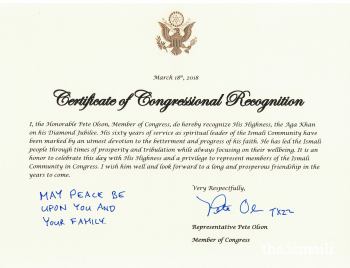 March 18th, 2018
Certificate of Congressional Recognition
I, the Honorable Pete Olson, Member of Congress, do hereby recognize His Highness, the Aga Khan
on his Diamond Jubilee. His sixty years of service as spiritual leader of the Ismali Community have
been marked by an utmost devotion to the betterment and progress of his faith. He has led the Ismali
people through times of prosperity and tribulation while always focusing on their wellbeing. It is an
honor to celebrate this day with His Highness and a privilege to represent members of the Ismali
Community in Congress. I wish him well and look forward to a long and prosperous friendship in the
years to come.
Very Respectfully,
MAY PEACE BE
UPON YOU AND
YOUR FAMILY.
Pete Ol TX22
Representative Pete Olson
Member of Congress
the.ismaili